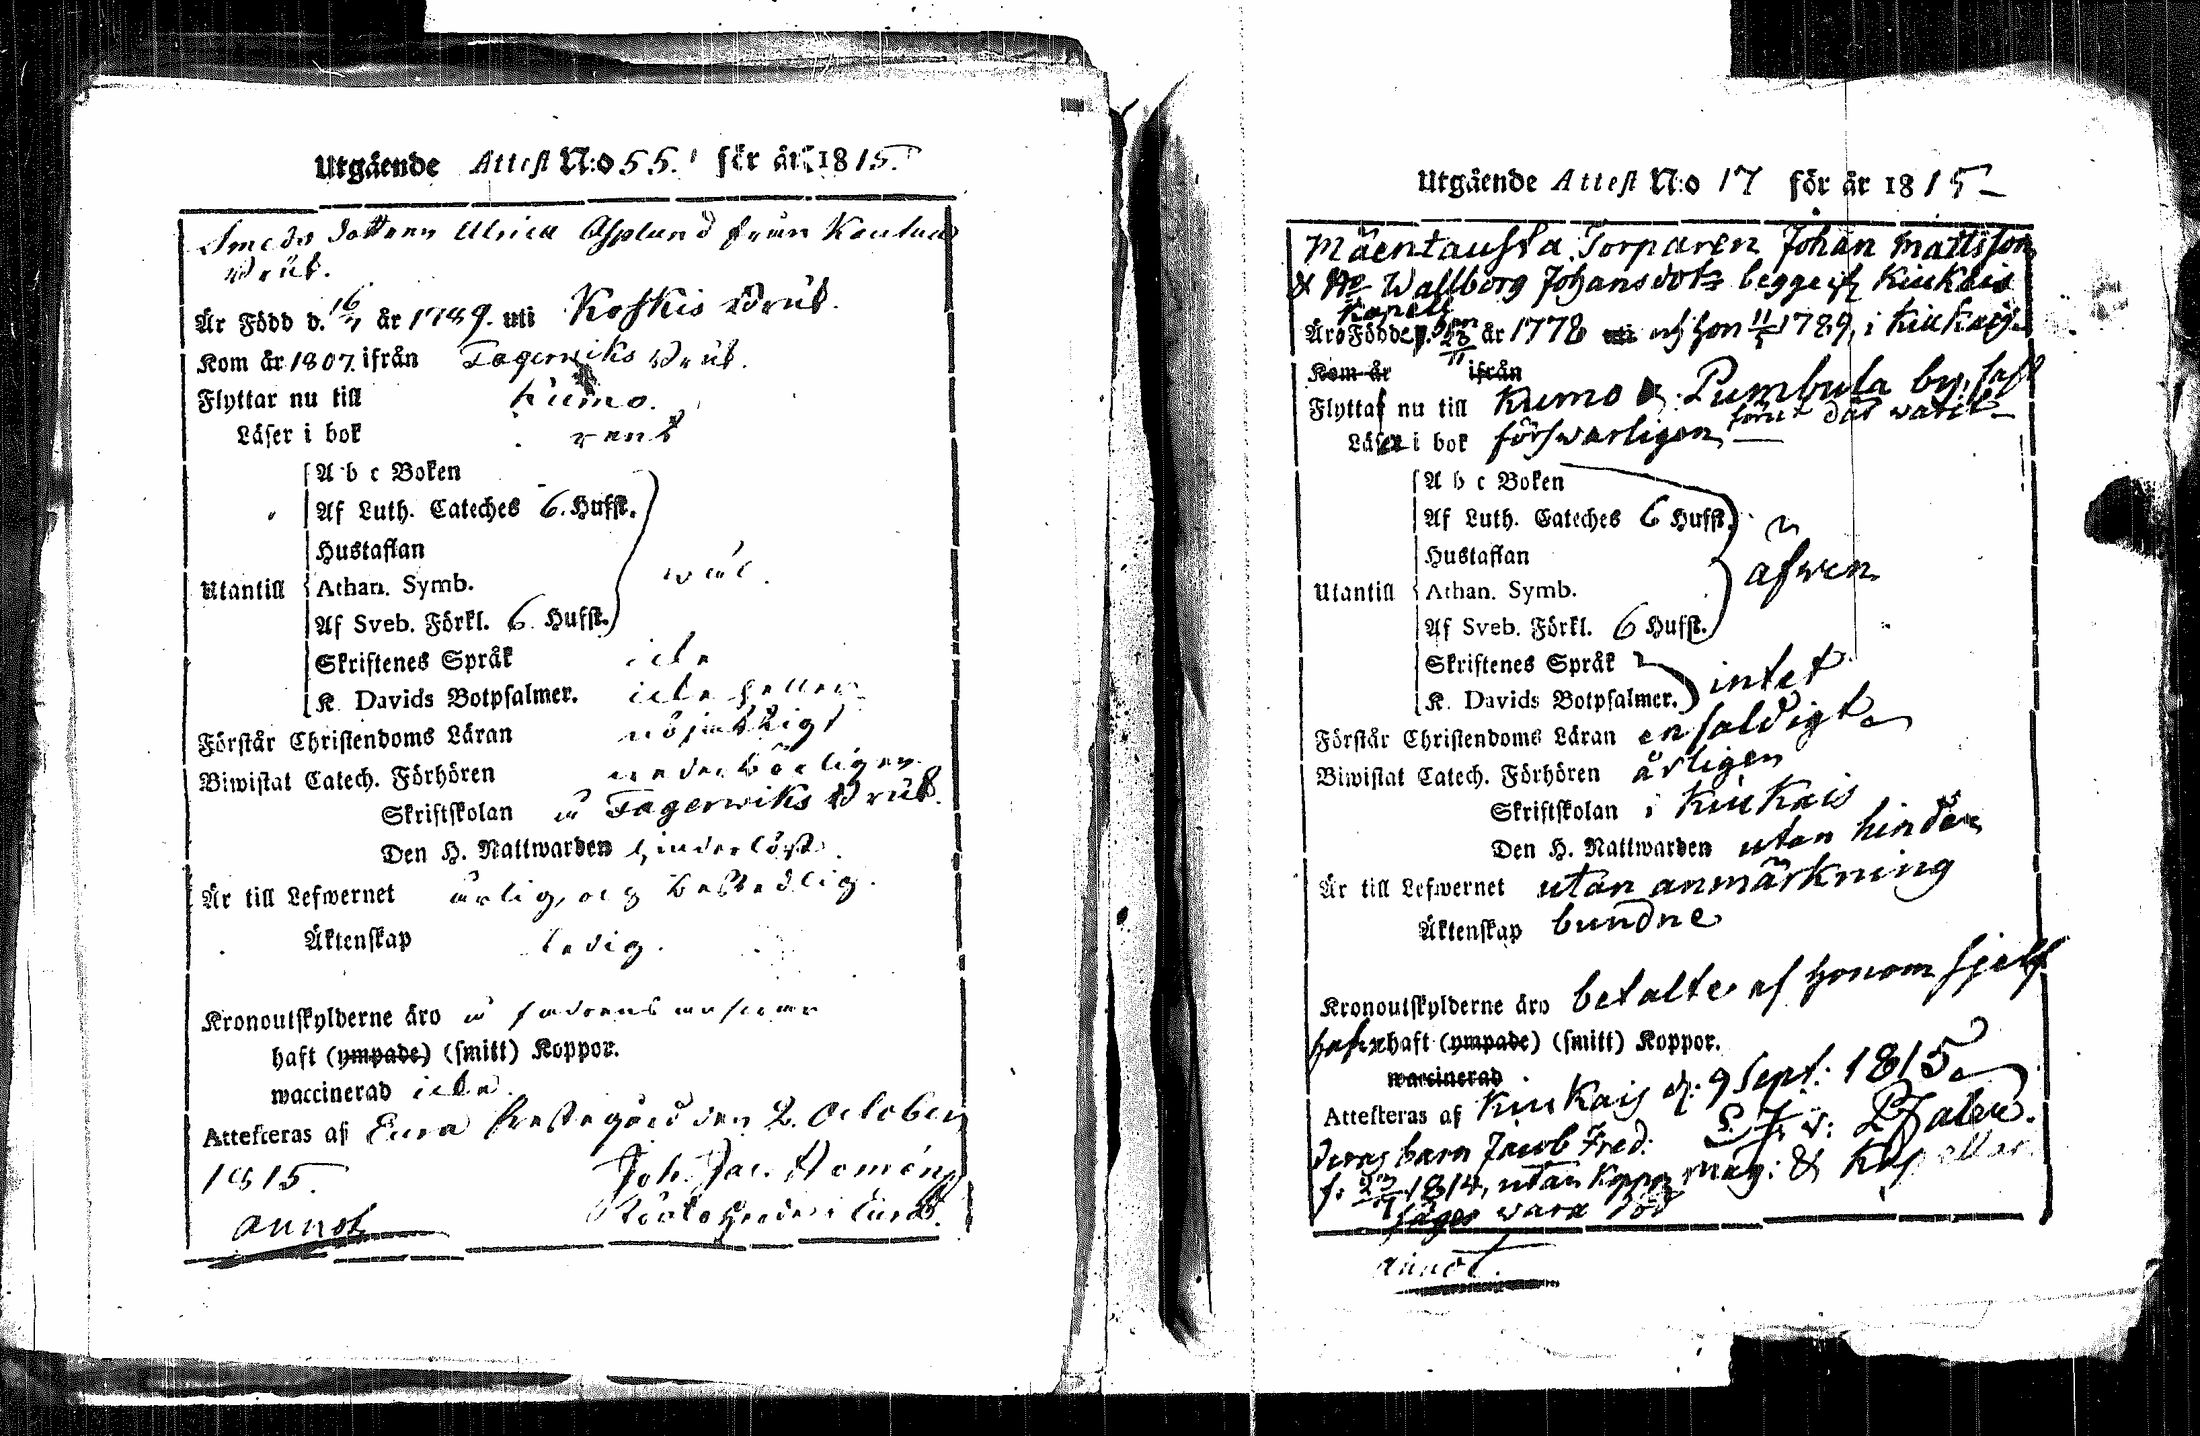 Utgående Attest N:o 55. för år 1815.
Smeds dottren Ulrica Asplund från Kautua
Bruk.
Är Född d. 16/7 år 1789. uti Koskis Bruk.
Kom år 1807. ifrån Fagerwiks Bruk.
Flyttar nu till Kumo.
Läser i bok rent
A b c Boken
Af Luth. Cateches 6. Hufst.
Hustaflan
Utantill Athan. Symb. wäl.
Af Sveb. Förkl. 6. Hufst.
Skriftenes Språk icke
K. Davids Botpsalmer. icke heller
Förstår Christendoms Läran nöjaktigt
Biwistat Catech. Förhören
Skriftskolan å Fagerwiks Bruk.
Den H. Nattwarden hinderlöst.
Är till Lefwernet ärlig, och beskedlig.
Äktenskap ledig.
Kronoutskylderne äro å fadrens
haft (ympade) (smitt) Koppor.
waccinerad icke.
Attesteras af Eura Prestegård den 2. October
1815. Joh. Jac.
Kyrkoherde i Eura.
annot
Utgående Attest N:o 17 för år 1815
Mäentausta Torparen Johan Mattsson
& H:u Wallborg Johansdotr begge ifr Kiukais
Kapell
Äro Födde, han 28/11 år 1778 uti och hon 11/5 1789, i Kiukais
Kom år ifrån
Flytta nu till Kumo & Pumbula by, haft
förut där warit
Läsa i bok förswarligen
A b c Boken
Af Luth. Cateches 6 Hufst.
Hustaflan äfwen
Utantill Athan. Symb.
Af Sveb. Förkl. 6 Hufst.
Skriftenes Språk
K. Davids Botpsalmer. intet
Förstår Christendoms Läran enfaldigt
Biwistat Catech. Förhören årligen
Skriftskolan i Kiukais
Den H. Nattwarden utan hinder
Är till Lefwernet utan anmärkning
Äktenskap bundne
Kronoutskylderne äro betalte af honom sjelf
hafwa haft (ympade) (smitt) Koppor.
waccinerad
Attesteras af Kiukais d. 9 Sept. 1815
Deras barn Jacob Fred. Pfaler.
f. 1814, utan Koppor Mag: & Kapellan
säges wara död
annot.